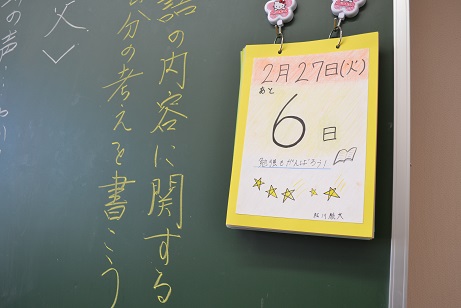 話の内容に関する
分の考えを書こう
父
の声
2月27日(火)
あと
6日
勉強もがんばろう!